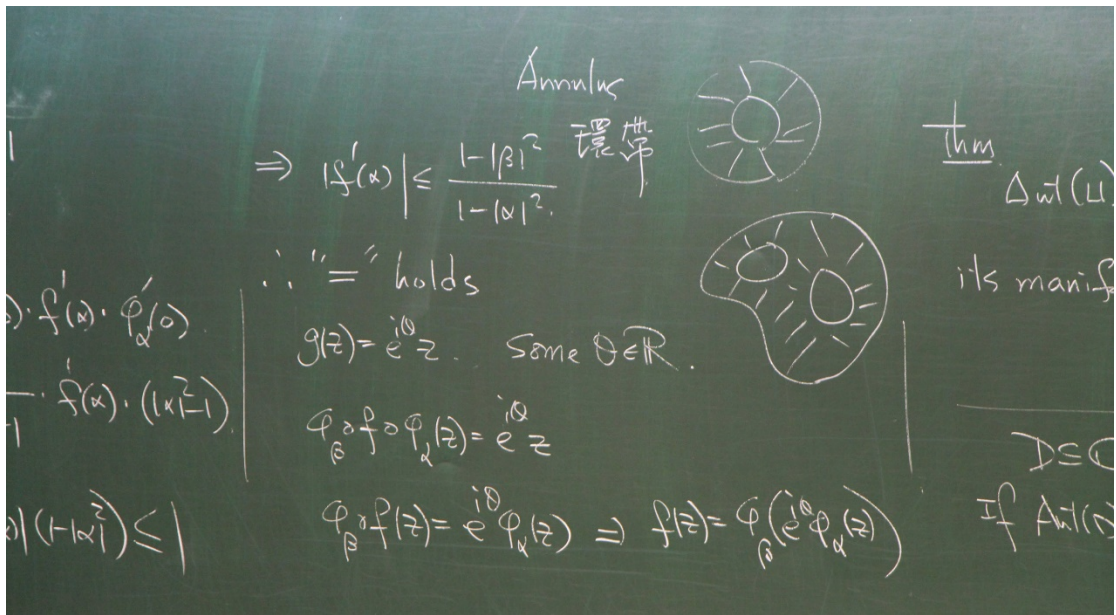 |
)·f'(α)·φ'_α(0).
-1 · f'(α)·(|α|²-1).
)|(1-|α|²)≤1
Annulus
環帶
⇒ |f'(α)|≤ (1-|β|²)/(1-|α|²).
∴ "=" holds
g(z)=e^{iθ}z. Some θ∈ℝ.
φ_β∘f∘φ_α(z)=e^{iθ}z
φ_β∘f(z)=e^{iθ}φ_α(z) ⇒ f(z)=φ_β(e^{iθ}φ_α(z))
thm
Aut(U)
its manif
D⊆
If Aut(